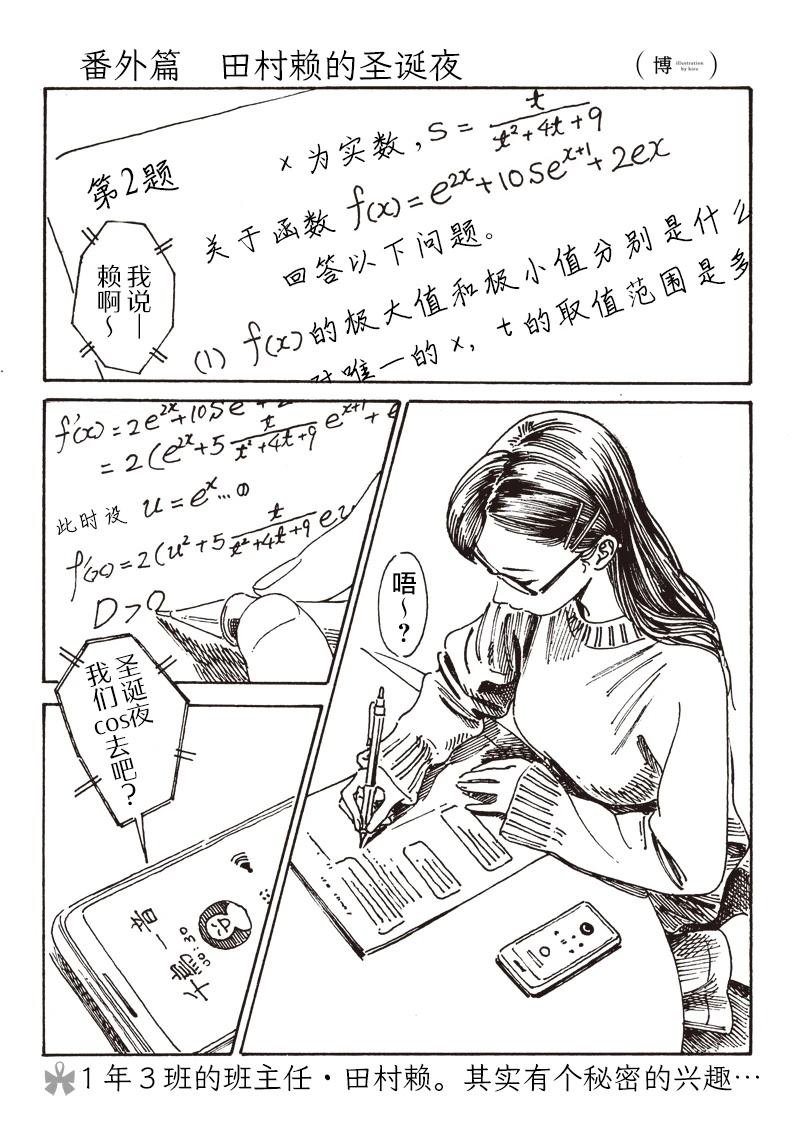 番外篇 田村赖的圣诞夜
(博 illustration by hiro)
第2题
x 为实数, S = t/(t²+4t+9)
关于函数 f(x)=e^{2x}+10Se^{x+1}+2ex
回答以下问题。
(1) f(x)的极大值和极小值分别是什么
对唯一的x, t的取值范围是多
我说—
赖啊~
f'(x)=2e^{2x}+10Se
=2(e^{2x}+5 t/(t²+4t+9) e^{x+1}+e
此时设 u=e^x…①
f'(x)=2(u²+5 t/(t²+4t+9) eu
D>0
唔~?
圣诞夜
我们
cos去吧?
大霜 一音
30:30
1年3班的班主任·田村赖。其实有个秘密的兴趣…